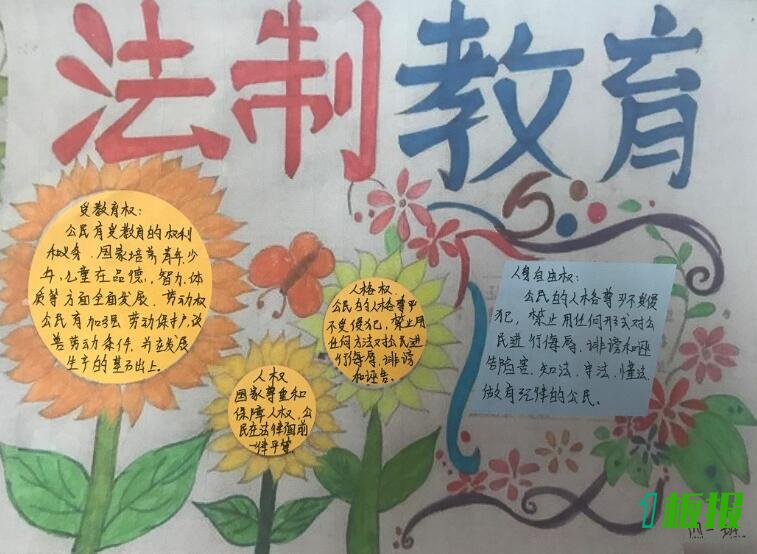 法制教育
受教育权:
公民有受教育的权利
和义务、国家培养青年少
年、儿童在品德、智力、体
质等方面全面发展、劳动权
公民有加强劳动保护,改
善劳动条件,并在发展
生产的基础上。
人格权
公民的人格尊严
不受侵犯,禁止用
任何方法对公民进
行侮辱、诽谤
和诬告。
人权
国家尊重和
保障人权、公
民在法律面前
一律平等
人身自由权:
公民的人格尊严不受侵
犯,禁止用任何形式对公
民进行侮辱、诽谤和诬
告陷害、知法、守法、懂法、
做有纪律的公民。
1板报
四一班